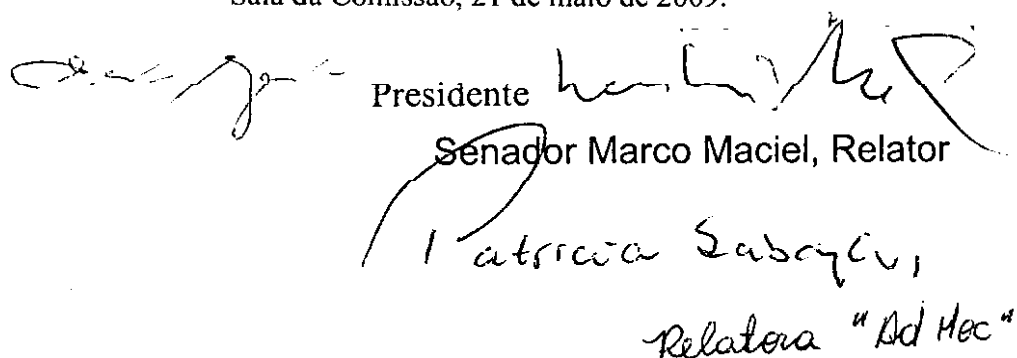 Sala da Comissão, 21 de maio de 2009.
Presidente
Senador Marco Maciel, Relator
Patricia Saboya,
Relatora "Ad Hoc"